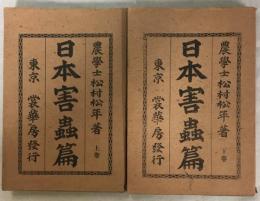 農學士松村松年著
上卷
日本害蟲篇
東京 裳華房發行
農學士松村松年著
下卷
日本害蟲篇
東京 裳華房發行